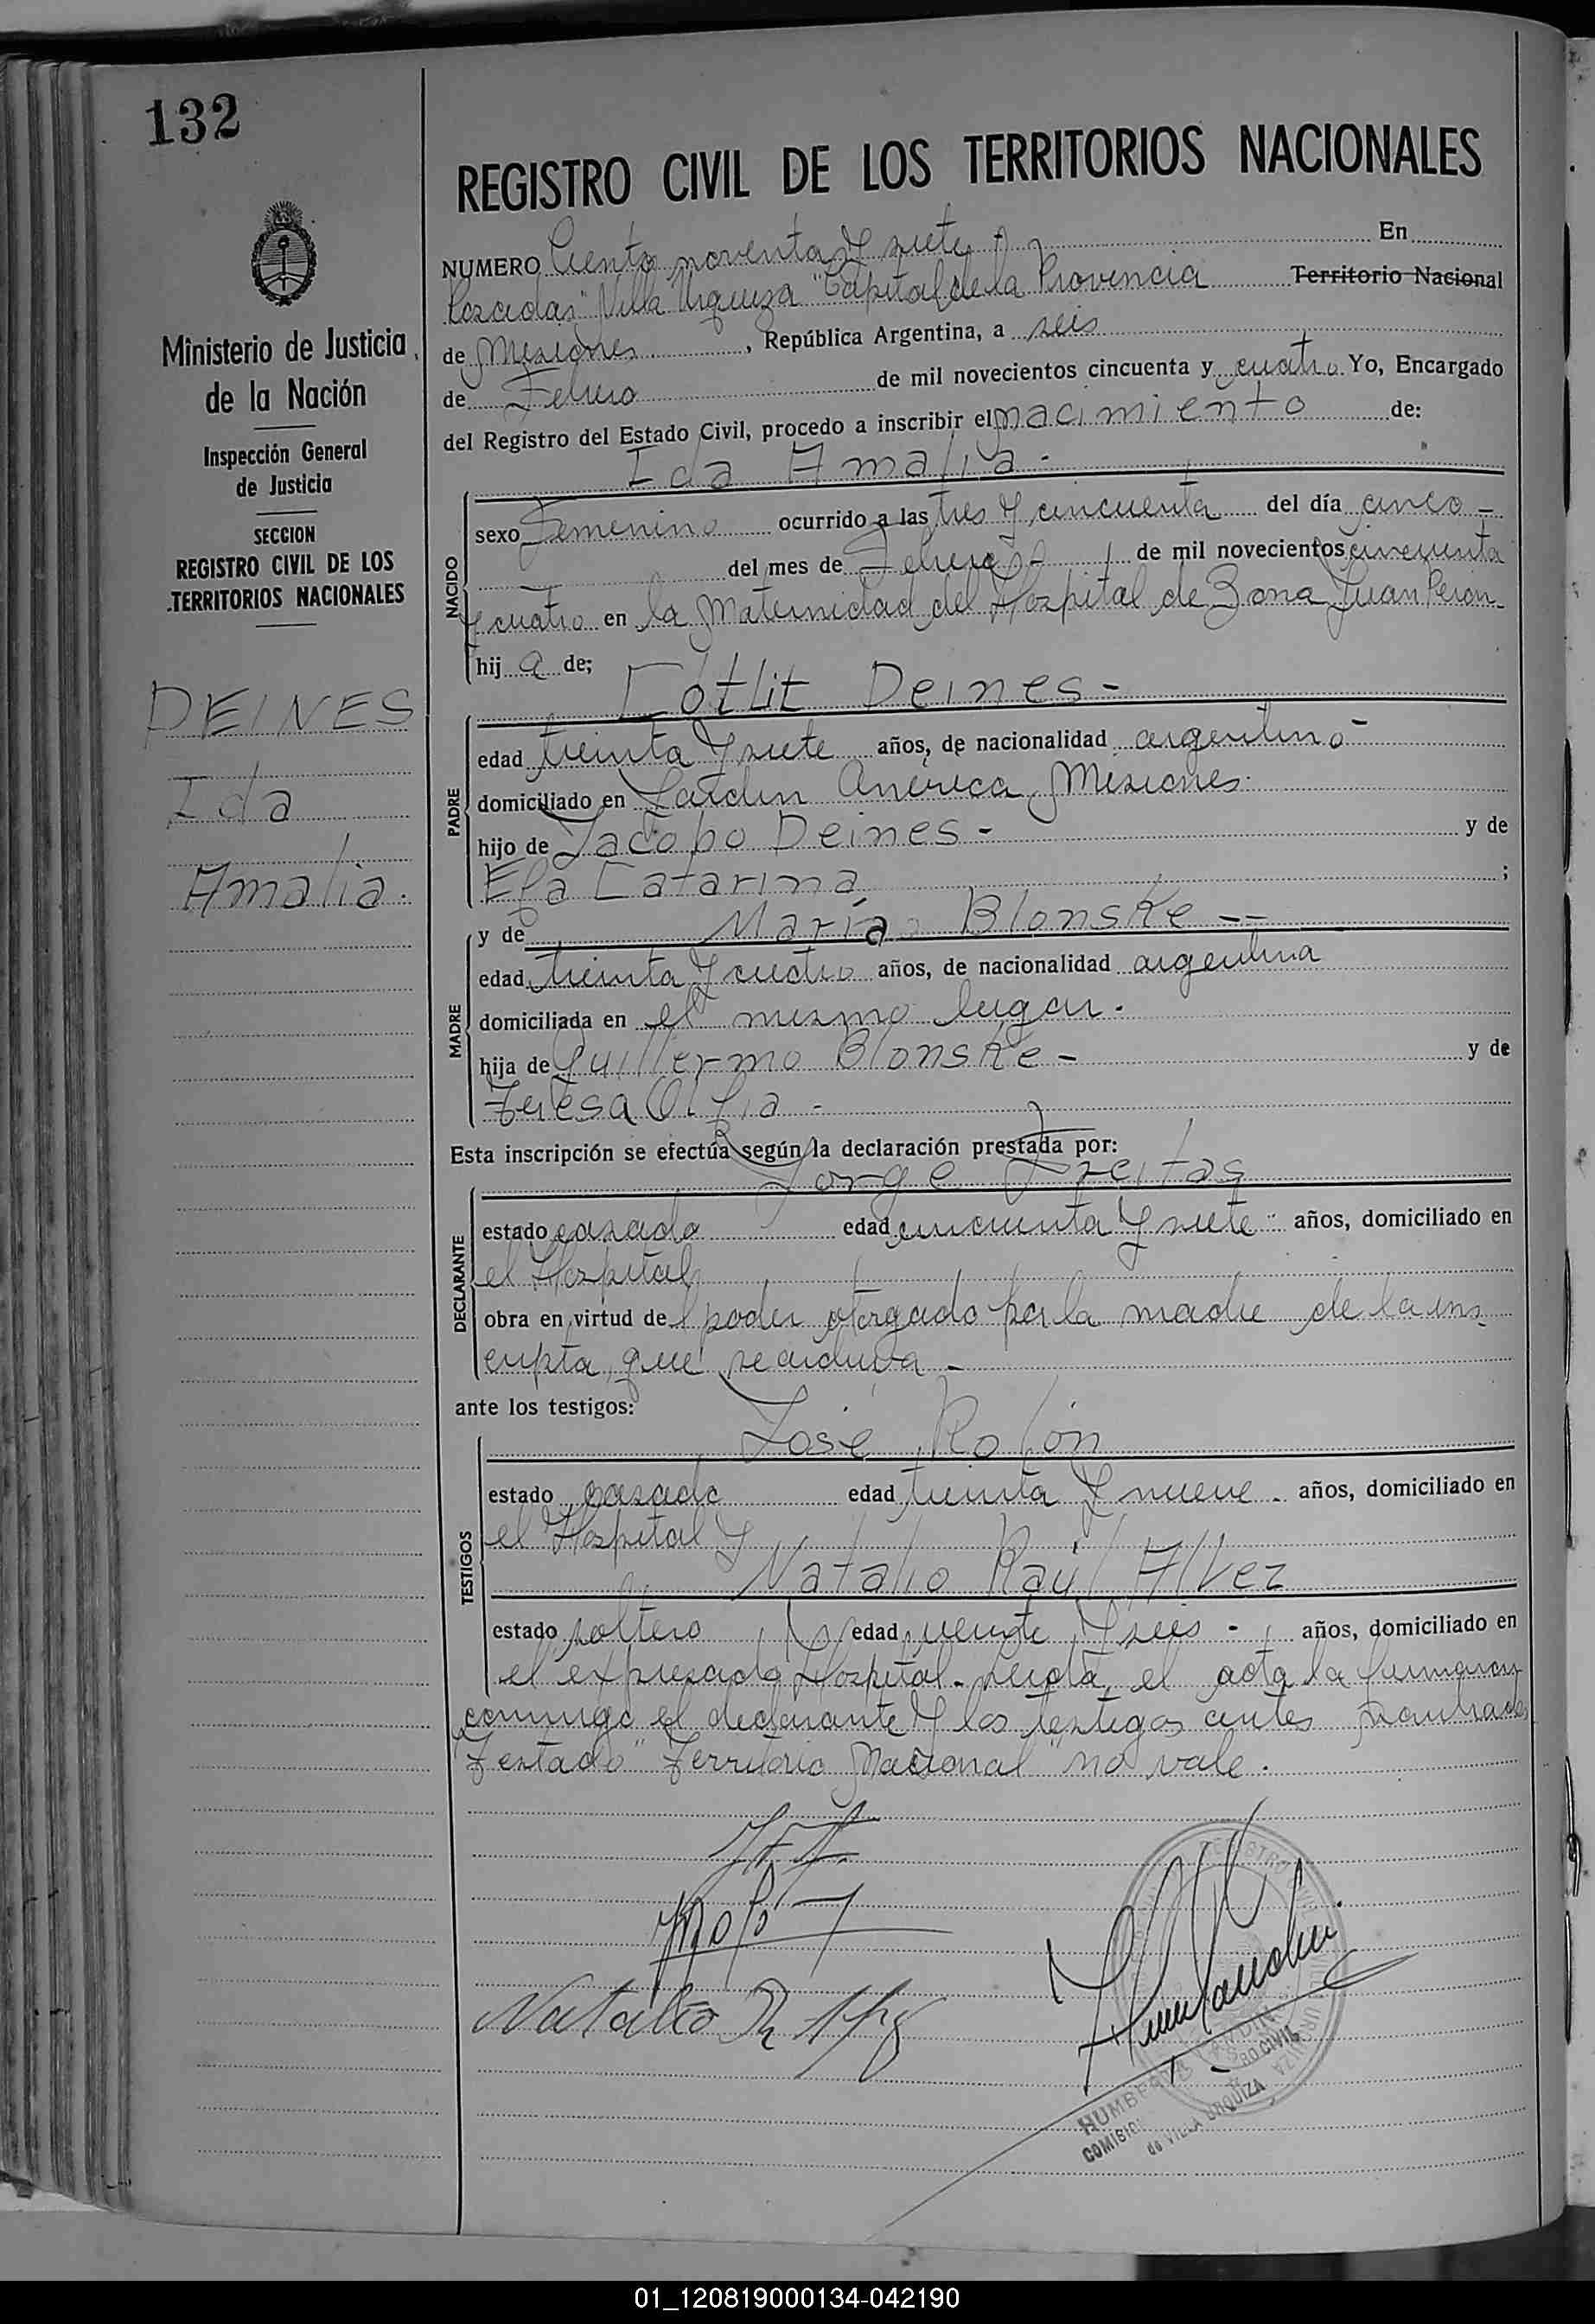 132
Ministerio de Justicia
de la Nación
Inspección General
de Justicia
SECCION
REGISTRO CIVIL DE LOS
TERRITORIOS NACIONALES
DEINES
Ida
Amalia.
REGISTRO CIVIL DE LOS TERRITORIOS NACIONALES
NUMERO Ciento noventa y siete En
Posadas "Villa Urquiza" Capital de la Provincia Territorio Nacional
de Misiones, República Argentina, a seis
de Febrero de mil novecientos cincuenta y cuatro Yo, Encargado
del Registro del Estado Civil, procedo a inscribir el nacimiento de:
Ida Amalia.-
NACIDO
sexo Femenino ocurrido a las tres y cincuenta del día cinco -
del mes de Febrero de mil novecientos cincuenta
y cuatro en la Maternidad del Hospital de Zona Juan Perón
hij a de;
Cotlit Deines -
PADRE
edad treinta y siete años, de nacionalidad argentino -
domiciliado en Jardin América, Misiones.
hijo de Jacobo Deines - y de
Catarina ;
y de María Blonske --
MADRE
edad treinta y cuatro años, de nacionalidad argentina
domiciliada en el mismo lugar.
hija de Guillermo Blonske - y de
Teresa
Esta inscripción se efectúa según la declaración prestada por:
Jorge Freitas
DECLARANTE
estado casado edad cincuenta y siete años, domiciliado en
el Hospital
obra en virtud de l poder otorgado por la madre de la ins
cripta que se archiva -
ante los testigos:
José Rolón
TESTIGOS
estado casado edad treinta y nueve - años, domiciliado en
el Hospital y
Natalio Raúl Alvez
estado soltero edad veinte y seis - años, domiciliado en
el expresado Hospital. Leida el acta la firmaron
conmigo el declarante y los testigos antes nombrados
Testado "Territorio Nacional" no vale.
Natalio R.
REGISTRO CIVIL
COMISION
de VILLA URQUIZA
01_120819000134-042190